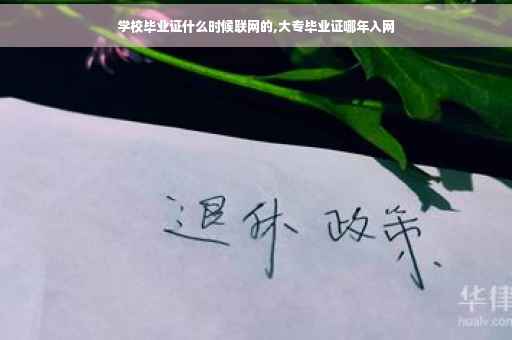 学校毕业证什么时候联网的,大专毕业证哪年入网
退休 政策
华律
hualv.com